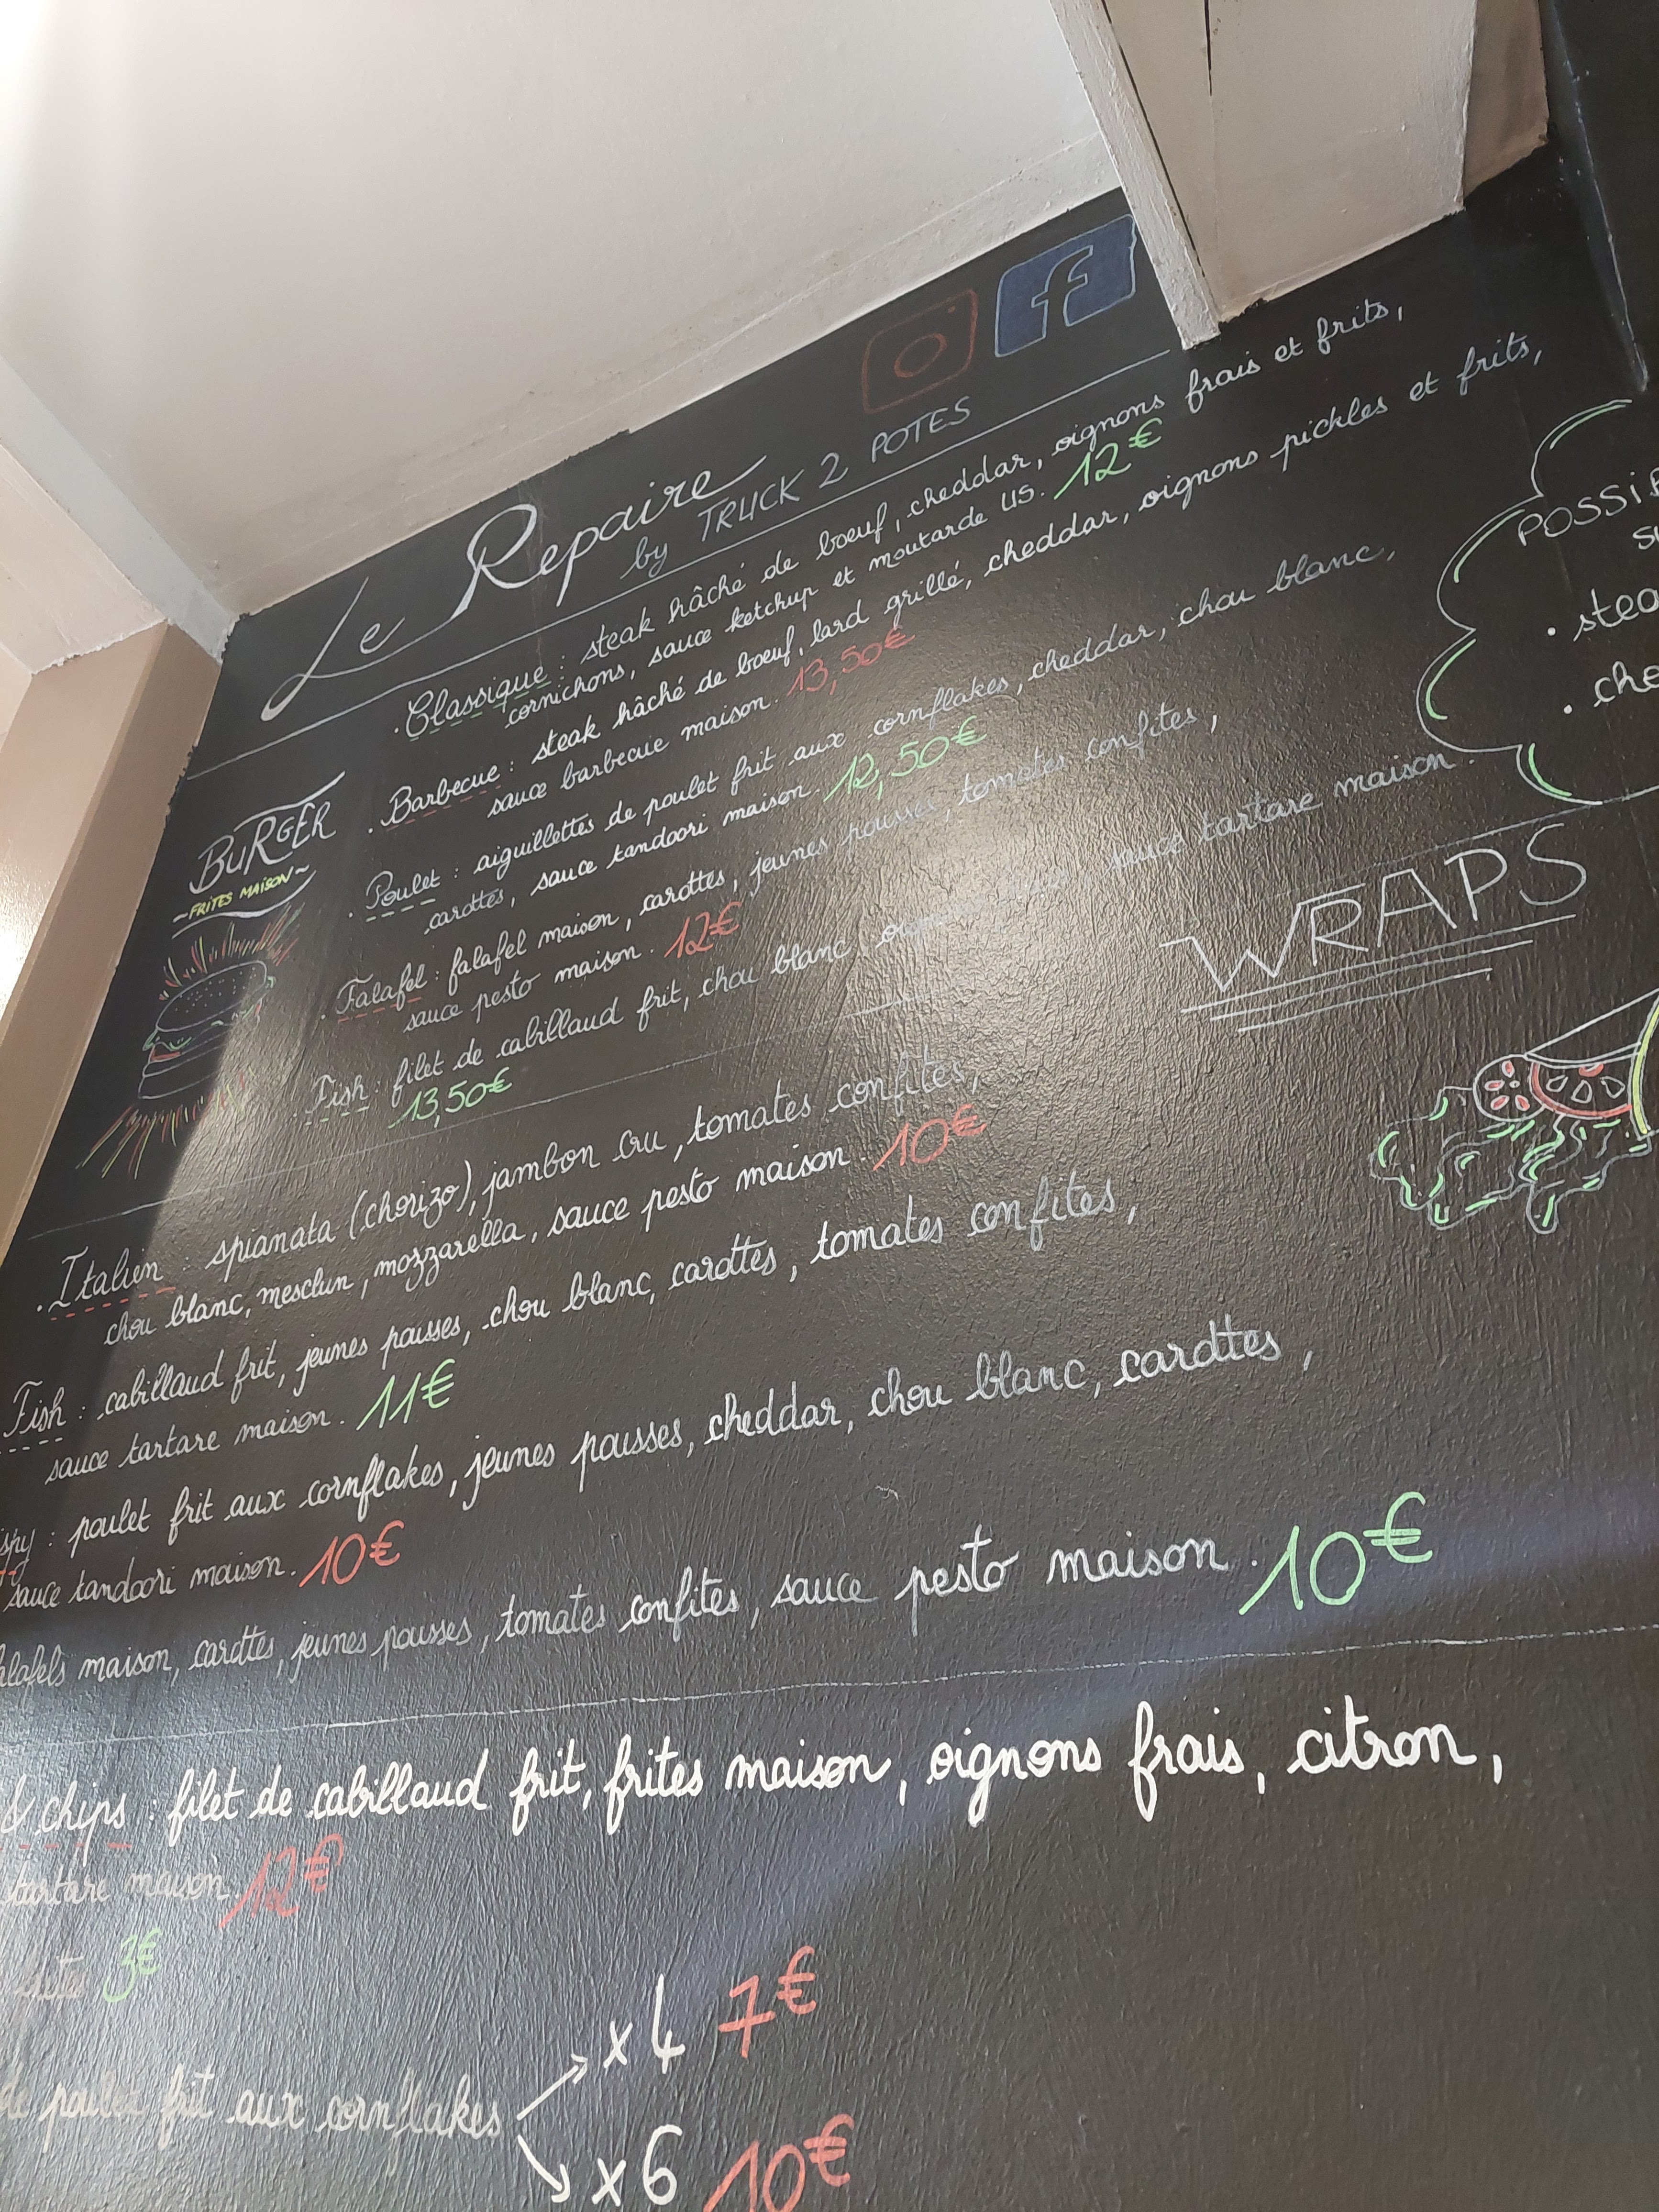 Le Repaire
by TRUCK 2 POTES
f
BURGER
~FRITES MAISON~
. Classique : steak hâché de boeuf, cheddar, oignons frais et frits,
cornichons, sauce ketchup et moutarde US. 12€
. Barbecue : steak hâché de boeuf, lard grillé, cheddar, oignons pickles et frits,
sauce barbecue maison. 13,50€
. Poulet : aiguillettes de poulet frit aux cornflakes, cheddar, chou blanc,
carottes, sauce tandoori maison. 12,50€
. Falafel : falafel maison, carottes, jeunes pousses, tomates confites,
sauce pesto maison. 12€
. Fish : filet de cabillaud frit, chou blanc, oignons frais, sauce tartare maison.
13,50€
POSSIB
su
. stea
. che
WRAPS
. Italien : spianata (chorizo), jambon cru, tomates confites,
chou blanc, mesclun, mozzarella, sauce pesto maison. 10€
Fish : cabillaud frit, jeunes pousses, chou blanc, carottes, tomates confites,
sauce tartare maison. 11€
spy : poulet frit aux cornflakes, jeunes pousses, cheddar, chou blanc, carottes,
sauce tandoori maison. 10€
alafels maison, carottes, jeunes pousses, tomates confites, sauce pesto maison. 10€
& chips : filet de cabillaud frit, frites maison, oignons frais, citron,
tartare maison. 12€
3€
de poulet frit aux cornflakes
x4 7€
x6 10€